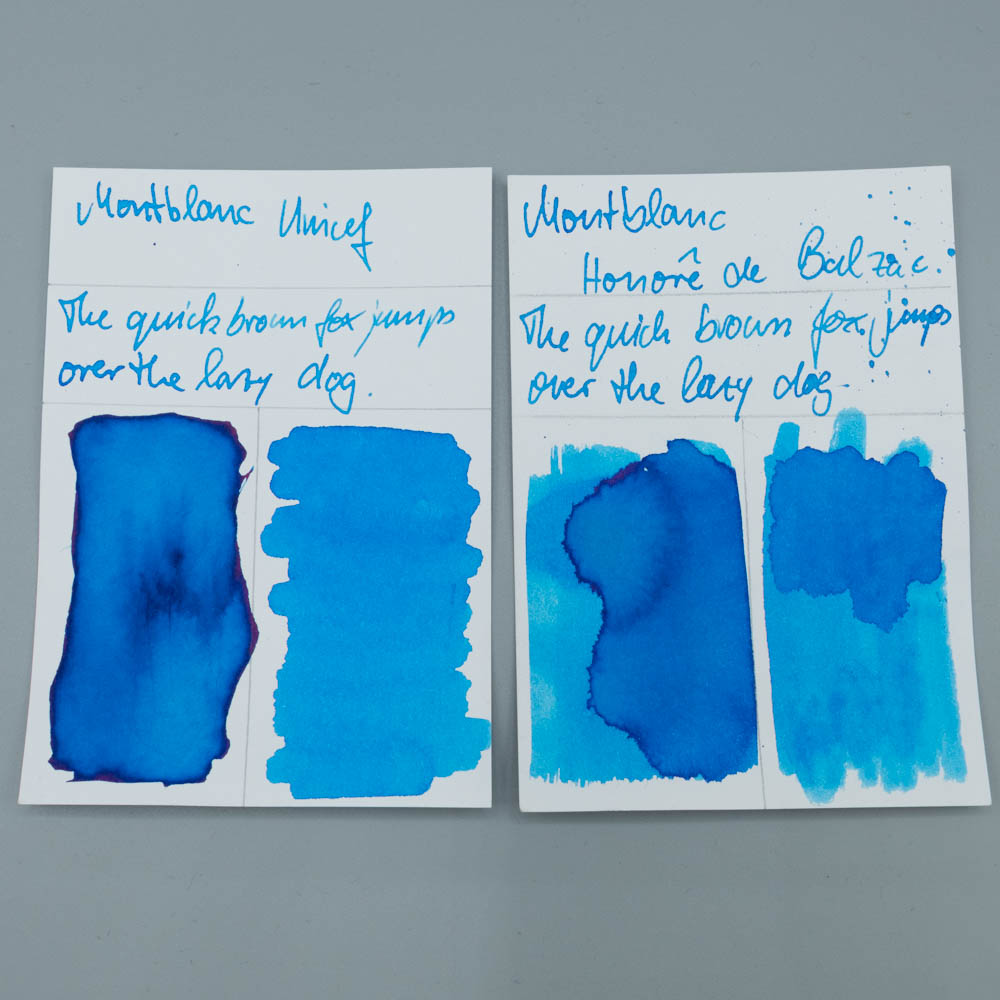 Montblanc Unicef
The quick brown fox jumps
over the lazy dog.
Montblanc
Honorê de Balzac.
The quick brown fox jumps
over the lazy dog.